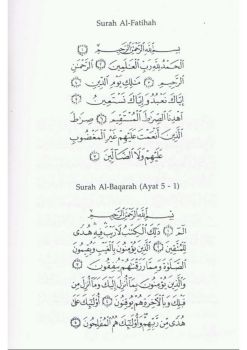 Surah Al-Fatihah
بِسْمِ اللَّهِ الرَّحْمَٰنِ الرَّحِيمِ ۝١
الْحَمْدُ لِلَّهِ رَبِّ الْعَالَمِينَ ۝٢ الرَّحْمَٰنِ
الرَّحِيمِ ۝٣ مَالِكِ يَوْمِ الدِّينِ ۝٤
إِيَّاكَ نَعْبُدُ وَإِيَّاكَ نَسْتَعِينُ ۝٥
اهْدِنَا الصِّرَاطَ الْمُسْتَقِيمَ ۝٦ صِرَاطَ
الَّذِينَ أَنْعَمْتَ عَلَيْهِمْ غَيْرِ الْمَغْضُوبِ
عَلَيْهِمْ وَلَا الضَّالِّينَ ۝٧
Surah Al-Baqarah (Ayat 5 - 1)
بِسْمِ اللَّهِ الرَّحْمَٰنِ الرَّحِيمِ
الم ۝١ ذَٰلِكَ الْكِتَابُ لَا رَيْبَ فِيهِ هُدًى
لِّلْمُتَّقِينَ ۝٢ الَّذِينَ يُؤْمِنُونَ بِالْغَيْبِ وَيُقِيمُونَ
الصَّلَاةَ وَمِمَّا رَزَقْنَاهُمْ يُنفِقُونَ ۝٣
وَالَّذِينَ يُؤْمِنُونَ بِمَا أُنزِلَ إِلَيْكَ وَمَا أُنزِلَ مِن
قَبْلِكَ وَبِالْآخِرَةِ هُمْ يُوقِنُونَ ۝٤ أُولَٰئِكَ عَلَىٰ
هُدًى مِّن رَّبِّهِمْ وَأُولَٰئِكَ هُمُ الْمُفْلِحُونَ ۝٥